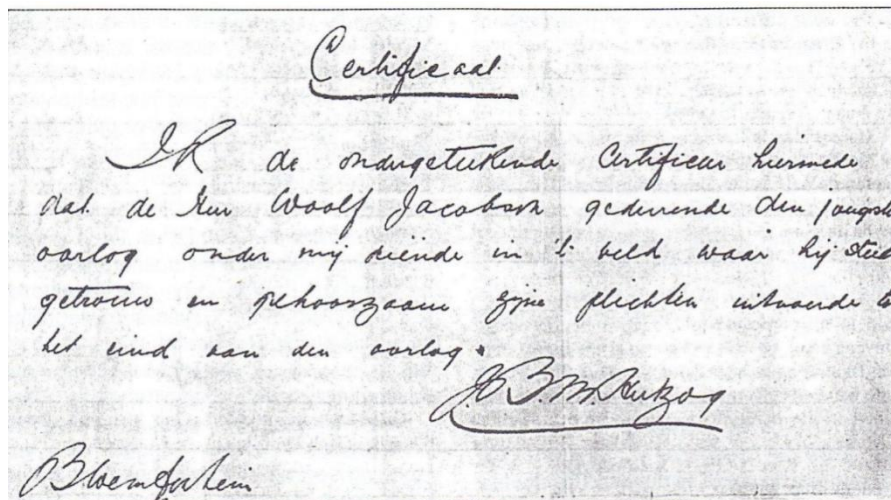 Certificaat
Ik de ondergeteekende Certificeer hiermede
dat de Heer Woolf Jacobson gedurende den jongst
oorlog onder mij diende in 't veld waar hij steed
getrouw en gehoorzaam zijne plichten uitvoerde
het eind van den oorlog.
J B. M. Hertzog
Bloemfontein